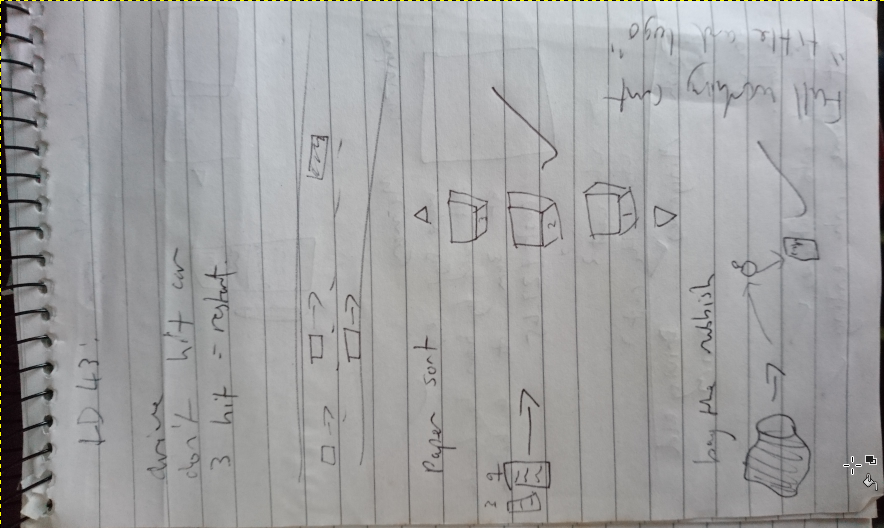 LD 43:
drive
don't hit car
3 hit = restart
Paper sort
2
1
bag the rubbish
Full working
"title and logo"